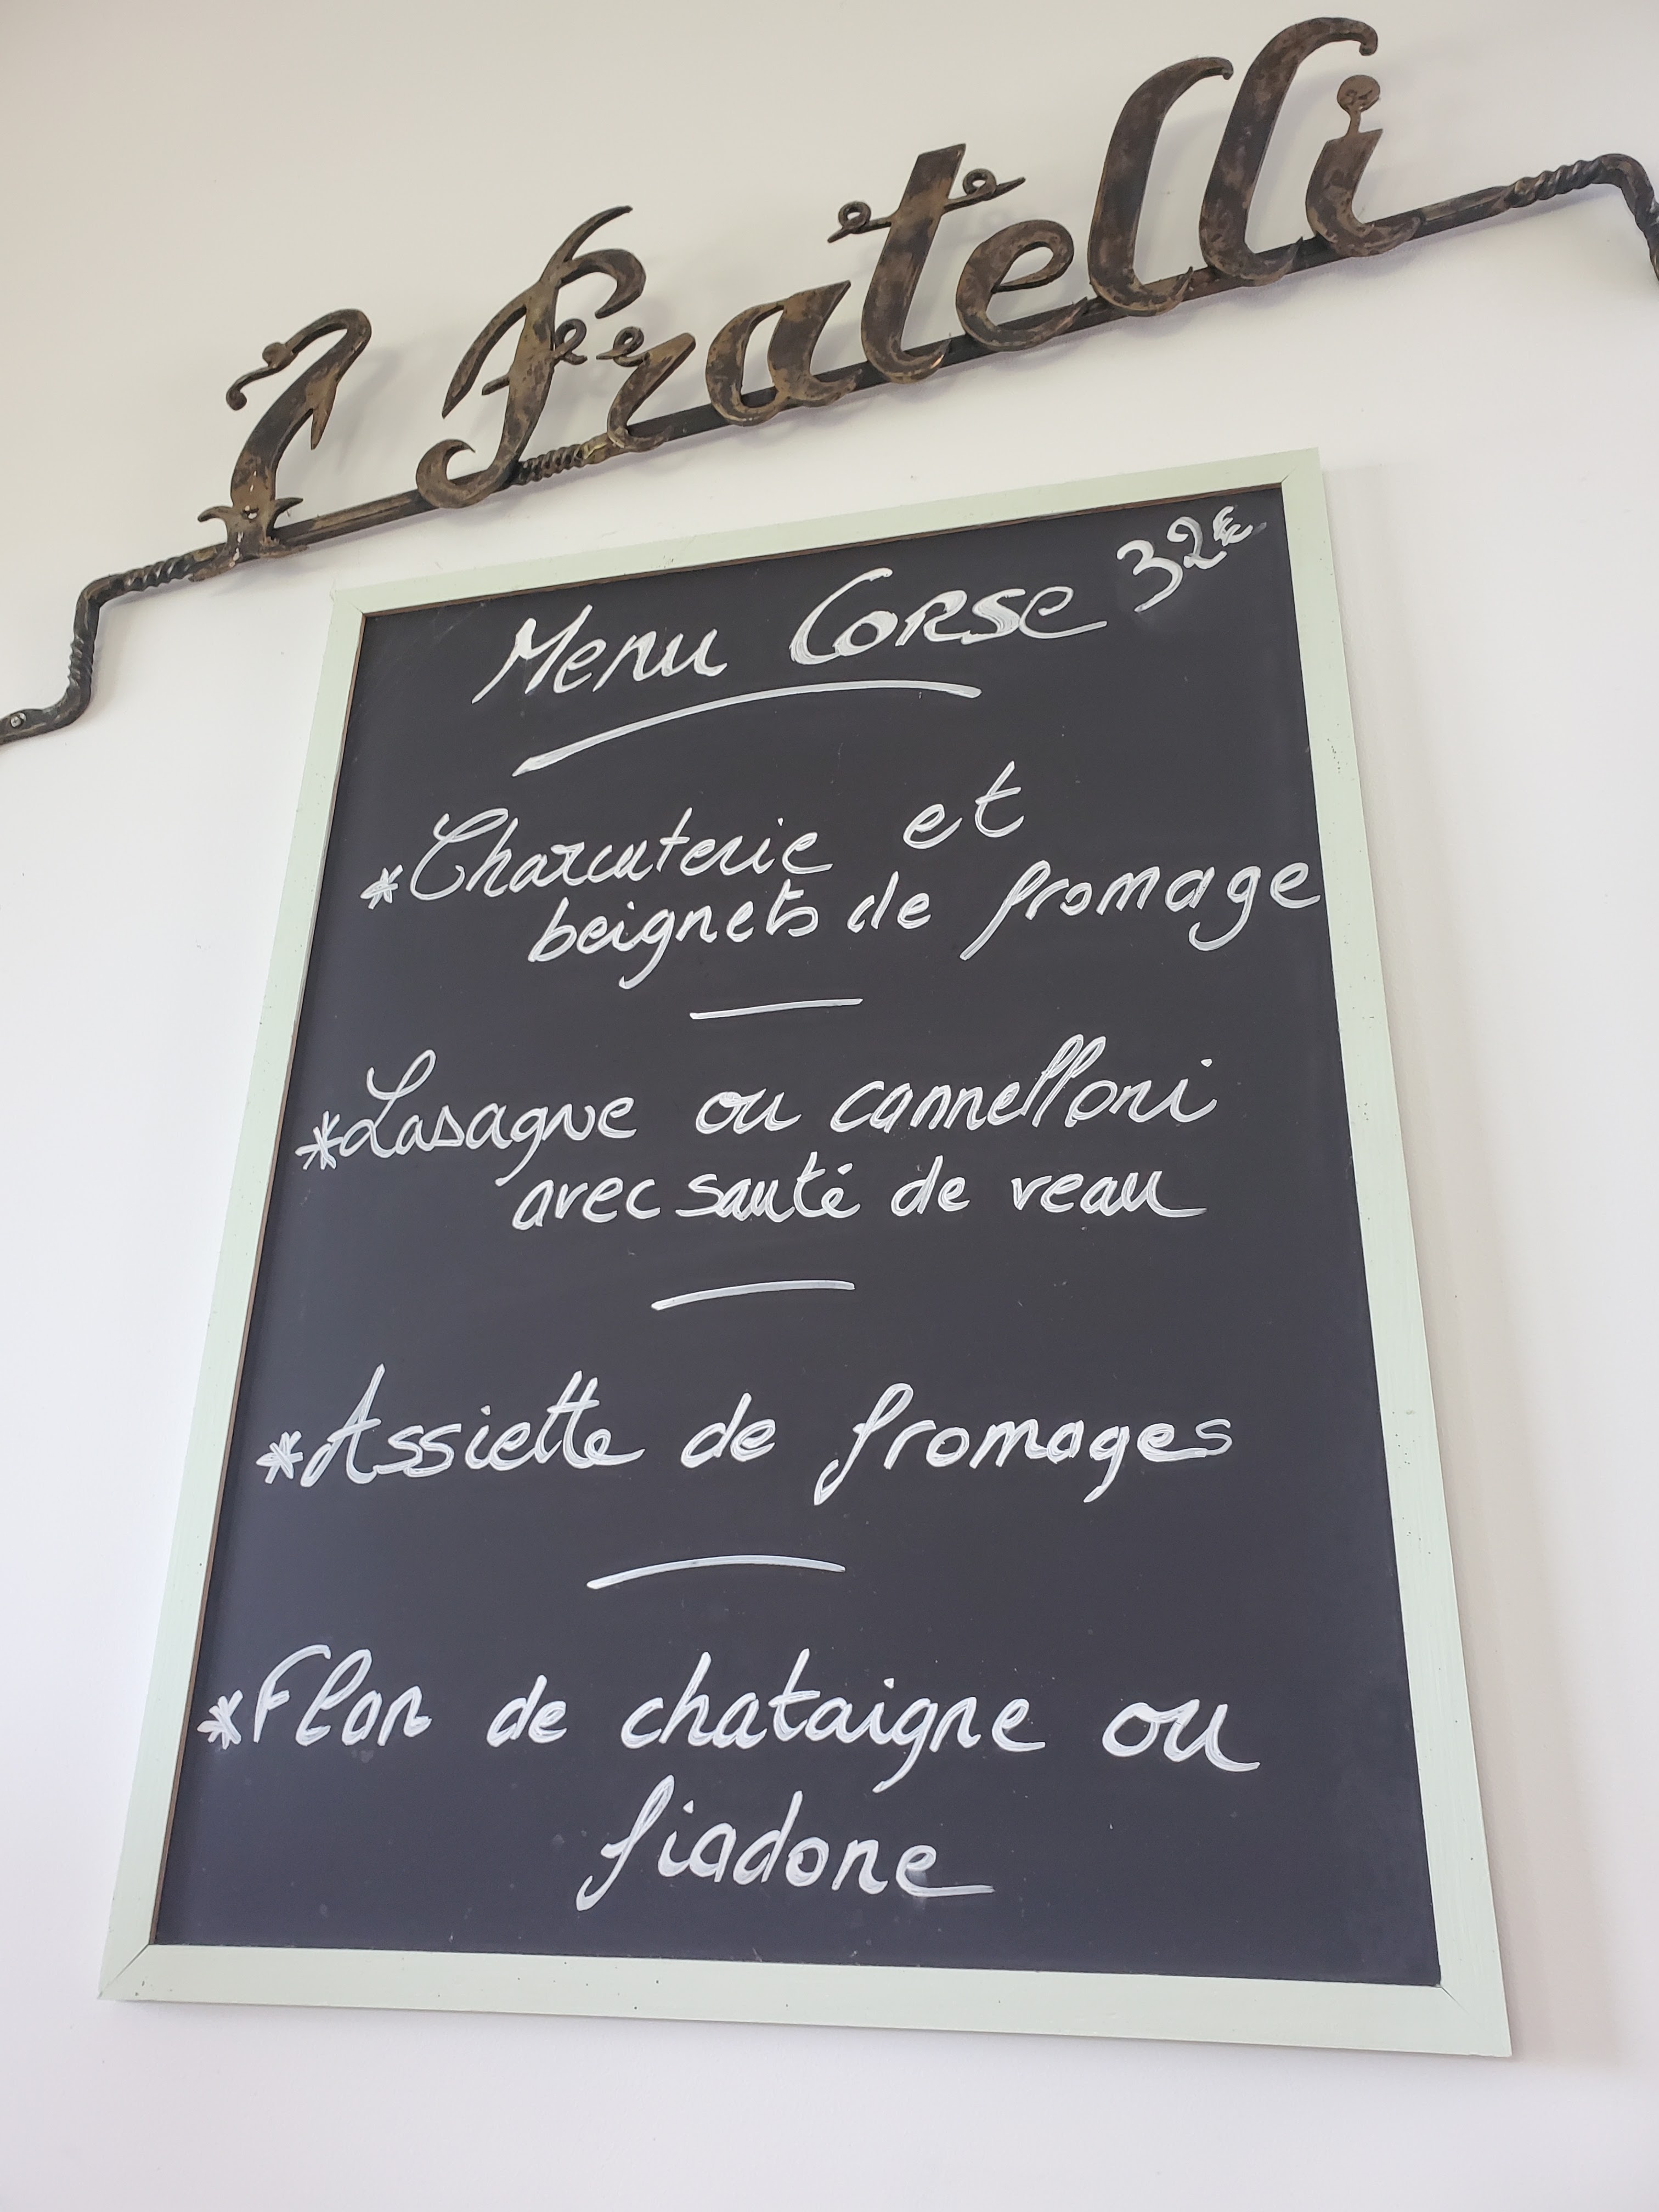 I Fratelli
32€
Menu Corse
*Charcuterie et
beignets de fromage
*Lasagne ou cannelloni
avec sauté de veau
*Assiette de fromages
*Flan de chataigne ou
fiadone